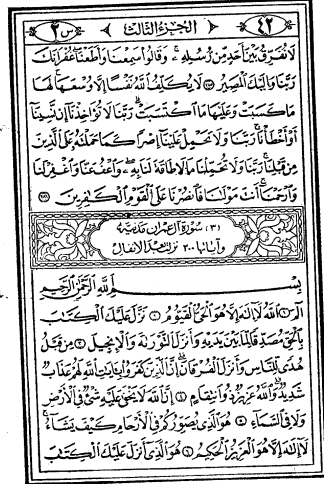 ٤٢ الجزء الثالث س ٢
لَا نُفَرِّقُ بَيْنَ أَحَدٍ مِن رُسُلِهِ وَقَالُوا سَمِعْنَا وَأَطَعْنَا غُفْرَانَكَ
رَبَّنَا وَإِلَيْكَ الْمَصِيرُ لَا يُكَلِّفُ اللَّهُ نَفْسًا إِلَّا وُسْعَهَا لَهَا
مَا كَسَبَتْ وَعَلَيْهَا مَا اكْتَسَبَتْ رَبَّنَا لَا تُؤَاخِذْنَا إِن نَسِينَا
أَوْ أَخْطَأْنَا رَبَّنَا وَلَا تَحْمِلْ عَلَيْنَا إِصْرًا كَمَا حَمَلْتَهُ عَلَى الَّذِينَ
مِن قَبْلِنَا رَبَّنَا وَلَا تُحَمِّلْنَا مَا لَا طَاقَةَ لَنَا بِهِ وَاعْفُ عَنَّا وَاغْفِرْ لَنَا
وَارْحَمْنَا أَنتَ مَوْلَانَا فَانصُرْنَا عَلَى الْقَوْمِ الْكَافِرِينَ
(٣) سُورَةُ آلِ عِمْرَانَ مَدَنِيَّة
وآياتها ٢٠٠ نزلت بعد الانفال
بِسْمِ اللَّهِ الرَّحْمَٰنِ الرَّحِيمِ
الٓمٓ اللَّهُ لَا إِلَٰهَ إِلَّا هُوَ الْحَيُّ الْقَيُّومُ نَزَّلَ عَلَيْكَ الْكِتَابَ
بِالْحَقِّ مُصَدِّقًا لِمَا بَيْنَ يَدَيْهِ وَأَنزَلَ التَّوْرَاةَ وَالْإِنجِيلَ مِن قَبْلُ
هُدًى لِلنَّاسِ وَأَنزَلَ الْفُرْقَانَ إِنَّ الَّذِينَ كَفَرُوا بِآيَاتِ اللَّهِ لَهُمْ عَذَابٌ
شَدِيدٌ وَاللَّهُ عَزِيزٌ ذُو انتِقَامٍ إِنَّ اللَّهَ لَا يَخْفَىٰ عَلَيْهِ شَيْءٌ فِي الْأَرْضِ
وَلَا فِي السَّمَاءِ هُوَ الَّذِي يُصَوِّرُكُمْ فِي الْأَرْحَامِ كَيْفَ يَشَاءُ
لَا إِلَٰهَ إِلَّا هُوَ الْعَزِيزُ الْحَكِيمُ هُوَ الَّذِي أَنزَلَ عَلَيْكَ الْكِتَابَ